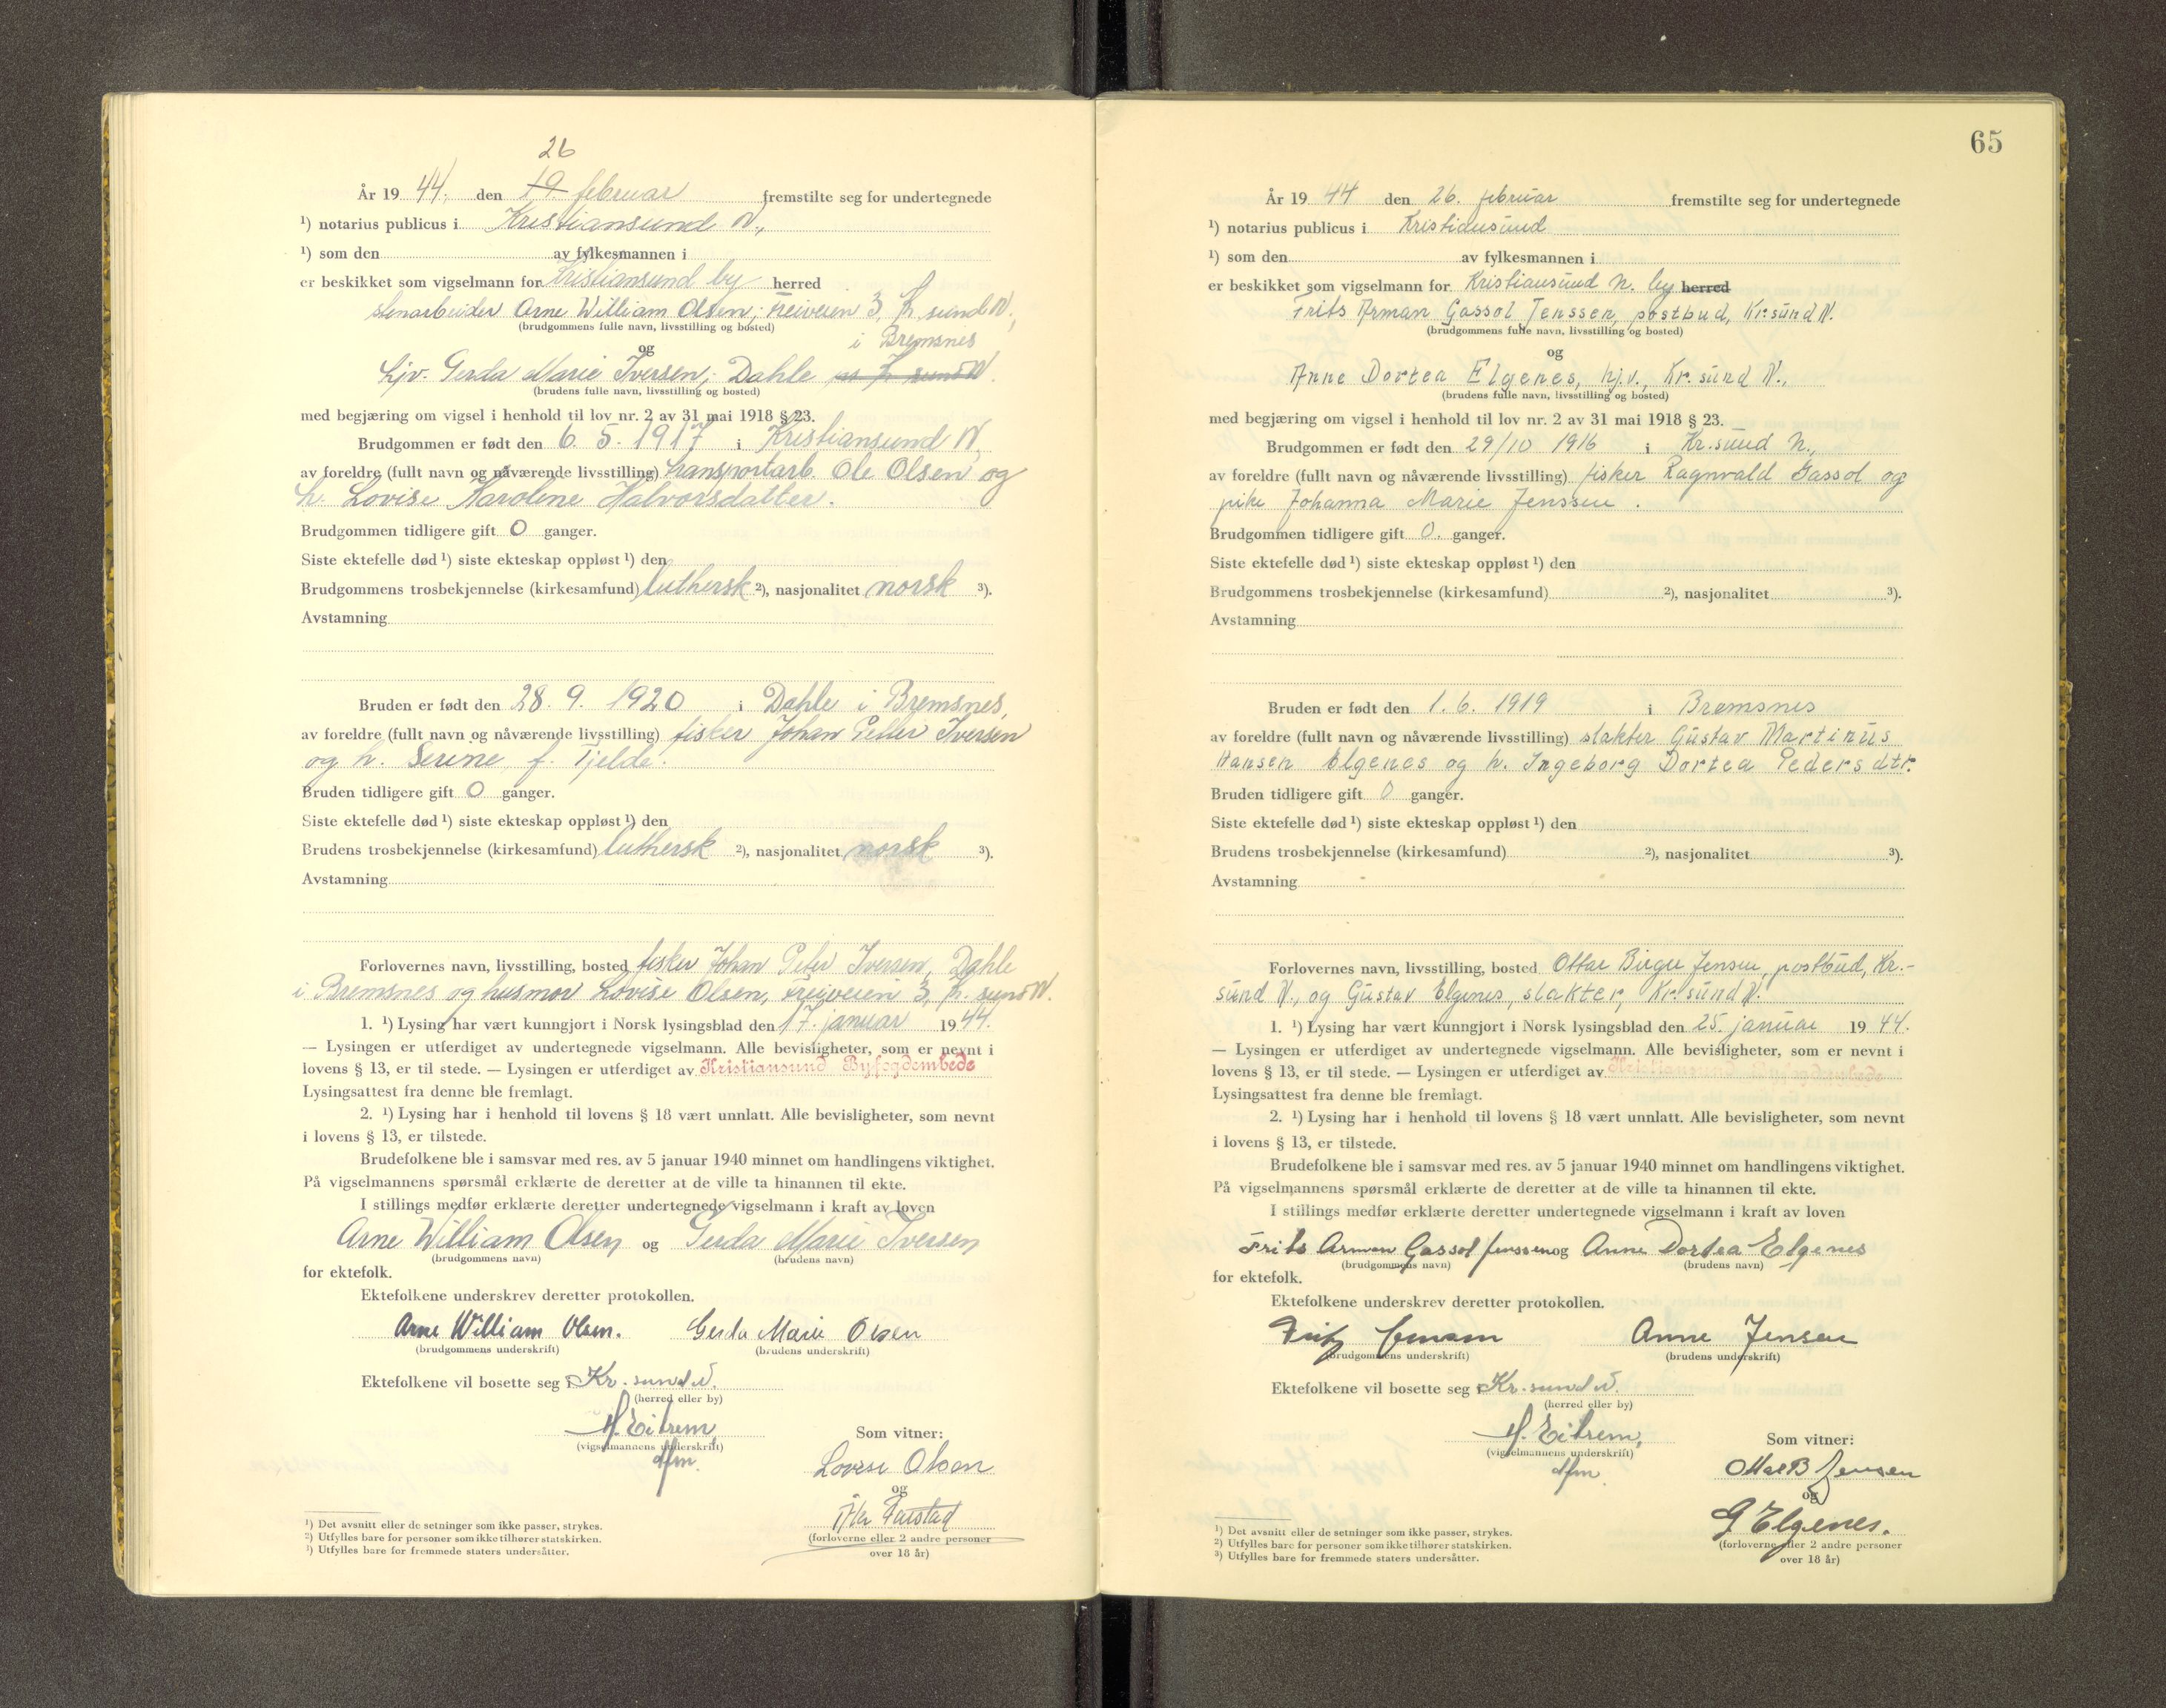 26
År 19 44. den 19. februar fremstilte seg for undertegnede
¹) notarius publicus i Kristiansund N.,
¹) som den av fylkesmannen i
er beskikket som vigselmann for Kristiansund by herred
stenarbeider Arne William Olsen, Freiveien 3, Kr. sund N.,
(brudgommens fulle navn, livsstilling og bosted)
og i Bremsnes
hjv. Gerda Marie Iversen, Dahle
(brudens fulle navn, livsstilling og bosted)
med begjæring om vigsel i henhold til lov nr. 2 av 31 mai 1918 § 23.
Brudgommen er født den 6. 5. 1917 i Kristiansund N.,
av foreldre (fullt navn og nåværende livsstilling) transportarb. Ole Olsen og
h. Lovise Karoline Halvorsdatter.
Brudgommen tidligere gift 0 ganger.
Siste ektefelle død ¹) siste ekteskap oppløst ¹) den
Brudgommens trosbekjennelse (kirkesamfund) luthersk ²), nasjonalitet norsk ³).
Avstamning
Bruden er født den 28. 9. 1920 i Dahle i Bremsnes,
av foreldre (fullt navn og nåværende livsstilling) fisker Johan Petter Iversen
og h. Serine f. Fjelde.
Bruden tidligere gift 0 ganger.
Siste ektefelle død ¹) siste ekteskap oppløst ¹) den
Brudens trosbekjennelse (kirkesamfund) luthersk ²), nasjonalitet norsk ³).
Avstamning
Forlovernes navn, livsstilling, bosted fisker Johan Peter Iversen, Dahle
i Bremsnes og husmor Lovise Olsen, Freiveien 3, Kr. sund N.
1. ¹) Lysing har vært kunngjort i Norsk lysingsblad den 17. januar 1944.
— Lysingen er utferdiget av undertegnede vigselmann. Alle bevisligheter, som er nevnt i
lovens § 13, er til stede. — Lysingen er utferdiget av Kristiansund Byfogdembede
Lysingsattest fra denne ble fremlagt.
2. ¹) Lysing har i henhold til lovens § 18 vært unnlatt. Alle bevisligheter, som nevnt
i lovens § 13, er tilstede.
Brudefolkene ble i samsvar med res. av 5 januar 1940 minnet om handlingens viktighet.
På vigselmannens spørsmål erklærte de deretter at de ville ta hinannen til ekte.
I stillings medfør erklærte deretter undertegnede vigselmann i kraft av loven
Arne William Olsen og Gerda Marie Iversen
(brudgommens navn) (brudens navn)
for ektefolk.
Ektefolkene underskrev deretter protokollen.
Arne William Olsen. Gerda Marie Olsen
(brudgommens underskrift) (brudens underskrift)
Ektefolkene vil bosette seg i Kr. sund N.
(herred eller by)
H. Eitrem,
(vigselmannens underskrift)
dfm.
Som vitner:
Lovise Olsen
og
(forloverne eller 2 andre personer
over 18 år)
¹) Det avsnitt eller de setninger som ikke passer, strykes.
²) Utfylles bare for personer som ikke tilhører statskirken.
³) Utfylles bare for fremmede staters undersåtter.
65
År 19 44 den 26. februar fremstilte seg for undertegnede
¹) notarius publicus i Kristiansund
¹) som den av fylkesmannen i
er beskikket som vigselmann for Kristiansund N. by herred
Frits Arman Gassol Jenssen, postbud, Kr.sund N.
(brudgommens fulle navn, livsstilling og bosted)
og
Anne Dortea Elgenes, hj.v., Kr. sund N.,
(brudens fulle navn, livsstilling og bosted)
med begjæring om vigsel i henhold til lov nr. 2 av 31 mai 1918 § 23.
Brudgommen er født den 29/10 1916 i Kr.sund N.,
av foreldre (fullt navn og nåværende livsstilling) fisker Ragnvald Gassol og
pike Johanna Marie Jenssen.
Brudgommen tidligere gift 0. ganger.
Siste ektefelle død ¹) siste ekteskap oppløst ¹) den
Brudgommens trosbekjennelse (kirkesamfund) ²), nasjonalitet ³).
Avstamning
Bruden er født den 1. 6. 1919 i Bremsnes
av foreldre (fullt navn og nåværende livsstilling) slakter Gustav Martinus
Hansen Elgenes og h. Ingeborg Dortea Pedersdtr.
Bruden tidligere gift 0 ganger.
Siste ektefelle død ¹) siste ekteskap oppløst ¹) den
Brudens trosbekjennelse (kirkesamfund) ²), nasjonalitet ³).
Avstamning
Forlovernes navn, livsstilling, bosted Ottar Birger Jensen, postbud, Kr.-
sund N., og Gustav Elgenes, slakter, Kr.sund N.
1. ¹) Lysing har vært kunngjort i Norsk lysingsblad den 25. januar 1944.
— Lysingen er utferdiget av undertegnede vigselmann. Alle bevisligheter, som er nevnt i
lovens § 13, er til stede. — Lysingen er utferdiget av Kristiansund Byfogdembede
Lysingsattest fra denne ble fremlagt.
2. ¹) Lysing har i henhold til lovens § 18 vært unnlatt. Alle bevisligheter, som nevnt
i lovens § 13, er tilstede.
Brudefolkene ble i samsvar med res. av 5 januar 1940 minnet om handlingens viktighet.
På vigselmannens spørsmål erklærte de deretter at de ville ta hinannen til ekte.
I stillings medfør erklærte deretter undertegnede vigselmann i kraft av loven
Frits Arman Gassol Jenssen og Anne Dortea Elgenes
(brudgommens navn) (brudens navn)
for ektefolk.
Ektefolkene underskrev deretter protokollen.
Fritz Jensen Anne Jensen
(brudgommens underskrift) (brudens underskrift)
Ektefolkene vil bosette seg i Kr. sund N.
(herred eller by)
H. Eitrem,
(vigselmannens underskrift)
dfm.
Som vitner:
Ottar B Jensen
og
G Elgenes.
(forloverne eller 2 andre personer
over 18 år)
¹) Det avsnitt eller de setninger som ikke passer, strykes.
²) Utfylles bare for personer som ikke tilhører statskirken.
³) Utfylles bare for fremmede staters undersåtter.